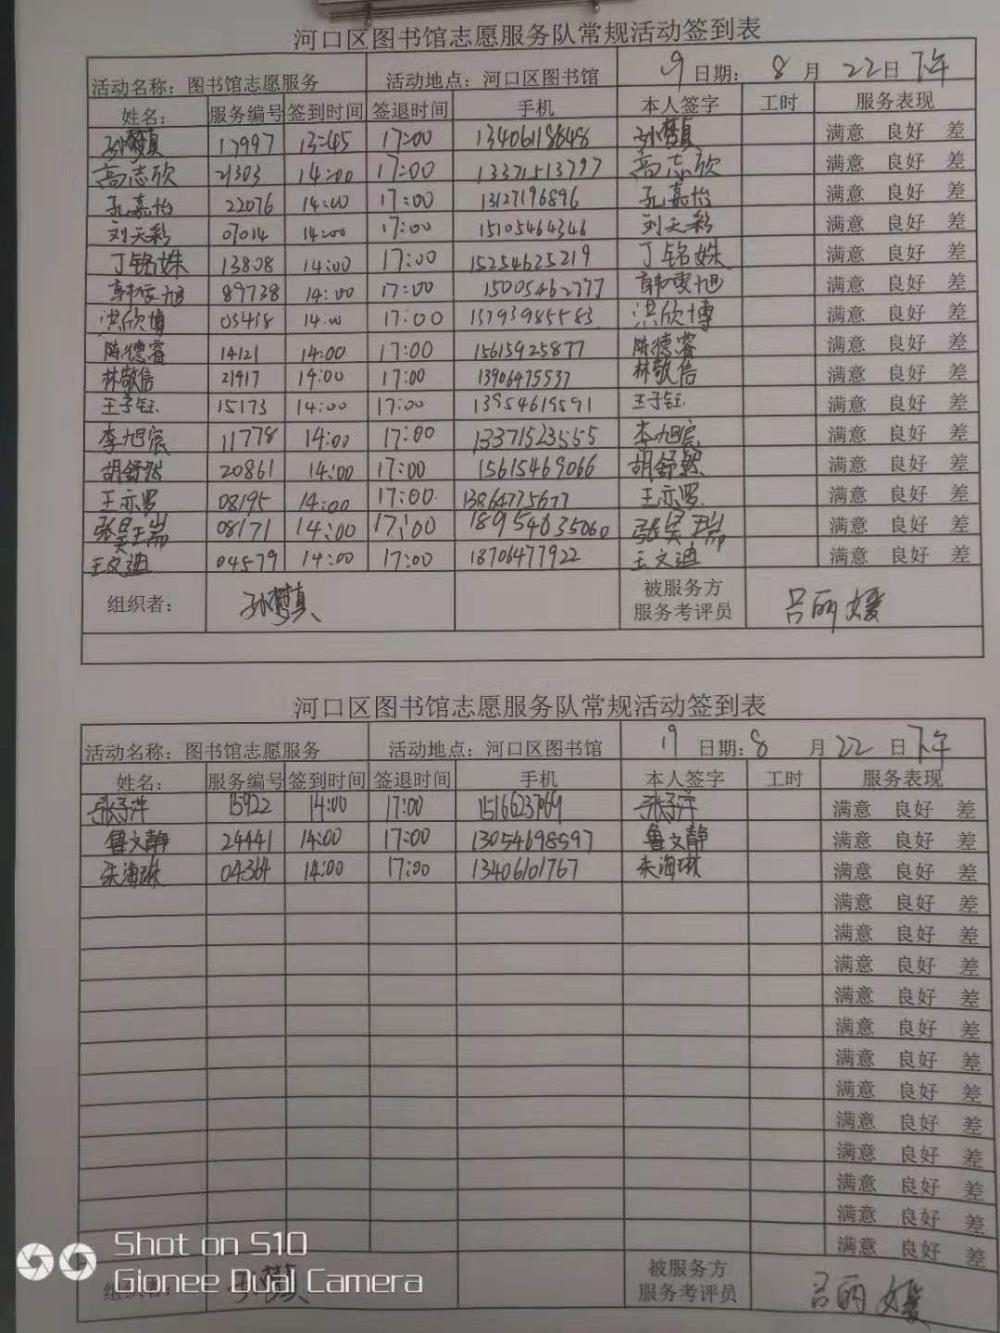 河口区图书馆志愿服务队常规活动签到表
活动名称：图书馆志愿服务 活动地点：河口区图书馆 19 日期：8 月 22 日 下午
姓名： 服务编号 签到时间 签退时间 手机 本人签字 工时 服务表现
孙梦真 17997 13:45 17:00 13406118648 孙梦真 满意 良好 差
高志欣 21303 14:00 17:00 13371513797 高志欣 满意 良好 差
孔嘉怡 22076 14:00 17:00 13127196896 孔嘉怡 满意 良好 差
刘天彩 07014 14:00 17:00 15105464346 刘天彩 满意 良好 差
丁铭姝 13808 14:00 17:00 15254625219 丁铭姝 满意 良好 差
89738 14:00 17:00 15005462777 满意 良好 差
洪欣博 03418 14:00 17:00 洪欣博 满意 良好 差
陈德睿 14121 14:00 17:00 15615925877 陈德睿 满意 良好 差
林敬信 21417 14:00 17:00 13906475537 林敬信 满意 良好 差
王子钰 15173 14:00 17:00 13954619591 王子钰 满意 良好 差
李旭宸 11778 14:00 17:00 13371523555 李旭宸 满意 良好 差
胡舒懿 20861 14:00 17:00 15615469066 胡舒懿 满意 良好 差
王亦罗 08195 14:00 17:00 13864775677 王亦罗 满意 良好 差
张昊瑞 08171 14:00 17:00 18954635060 张昊瑞 满意 良好 差
王文迪 04579 14:00 17:00 18706477922 王文迪 满意 良好 差
组织者： 孙梦真 被服务方 服务考评员 吕丽媛
河口区图书馆志愿服务队常规活动签到表
活动名称：图书馆志愿服务 活动地点：河口区图书馆 19 日期：8 月 22 日 下午
姓名： 服务编号 签到时间 签退时间 手机 本人签字 工时 服务表现
张子萍 15922 14:00 17:00 张子萍 满意 良好 差
鲁文静 24441 14:00 17:00 13054698597 鲁文静 满意 良好 差
朱海琳 04364 14:00 17:00 13406101767 朱海琳 满意 良好 差
满意 良好 差
满意 良好 差
满意 良好 差
满意 良好 差
满意 良好 差
满意 良好 差
满意 良好 差
满意 良好 差
满意 良好 差
满意 良好 差
满意 良好 差
满意 良好 差
组织者： 孙梦真 被服务方 服务考评员 吕丽媛
Shot on S10
Gionee Dual Camera